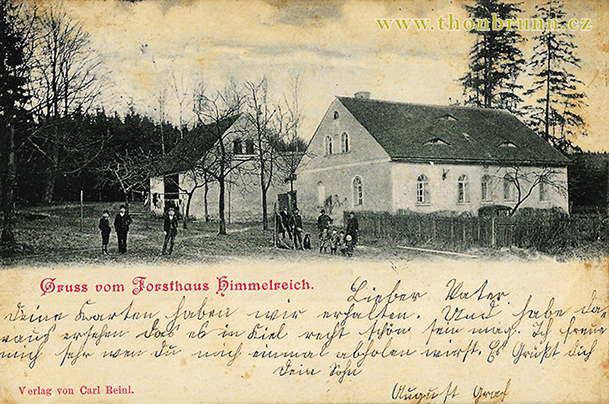 www.thonbrunn.cz
Gruss vom Forsthaus Himmelreich.
Lieber Vater.
Deine Karten haben wir erhalten. Und habe da-
raus ersehen das es in Kiel recht schön sein mag. Ich freue
mich sehr wen du noch einmal abholen wirst. Es Grüßt dich
Dein Sohn
August Graf
Verlag von Carl Reinl.